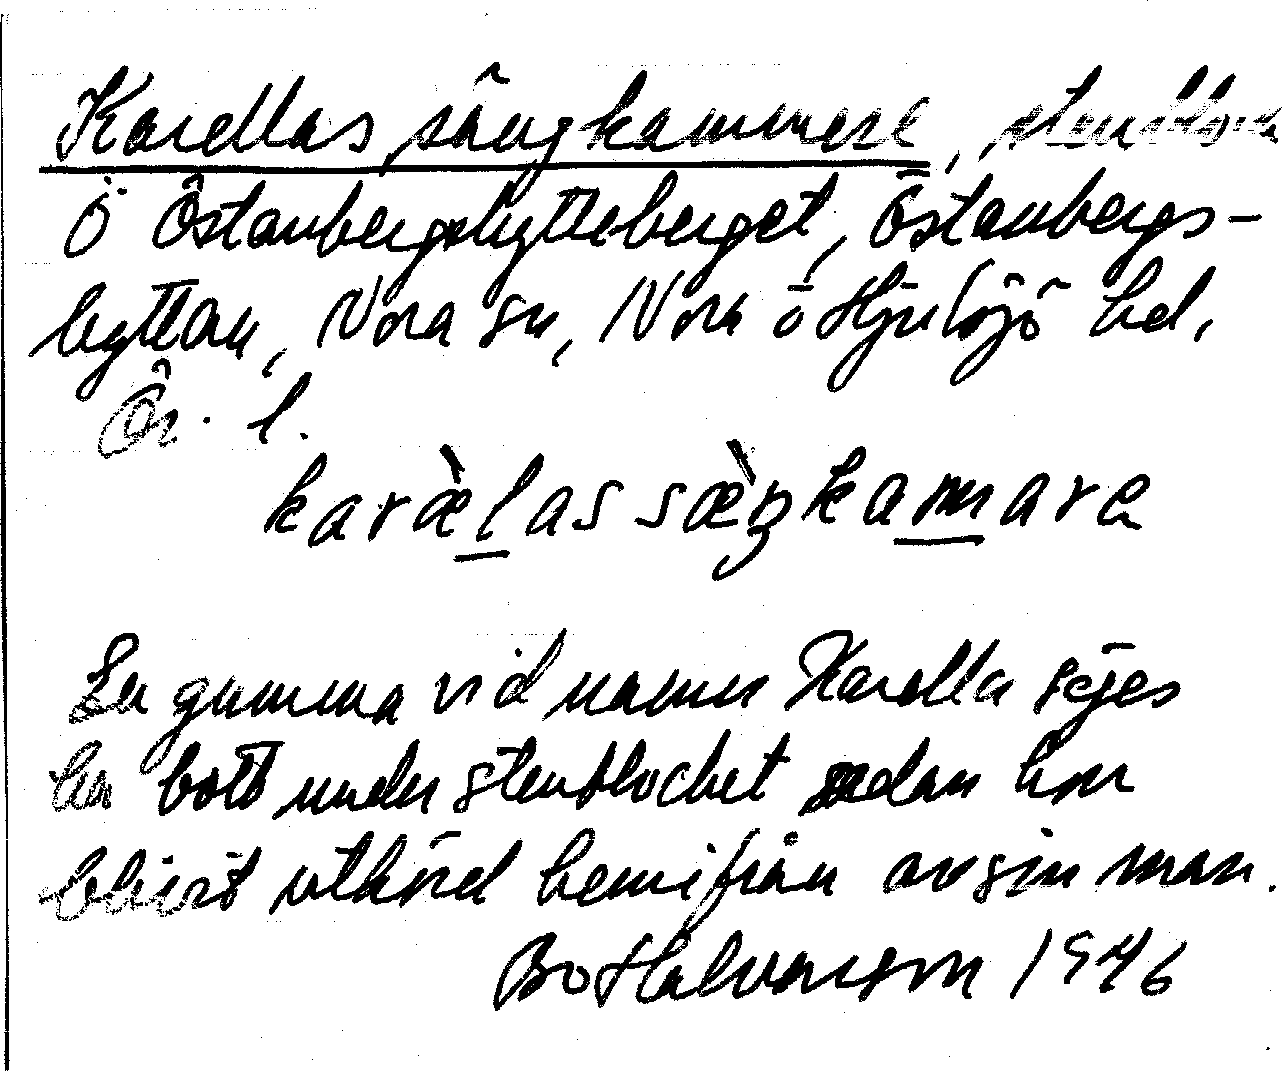 Karellas sängkammere, stenblock
Ö Östanbergshytteberget, Östanbergs-
hyttan, Nora sn, Nora ö Hjulsjö hd,
Ör. l.
karæ̀las sæ̀ŋkamara
En gumma vid namn Karella säges
ha bott under stenblocket sedan hon
blivit utkörd hemifrån av sin man.
Bo Halvarsson 1946